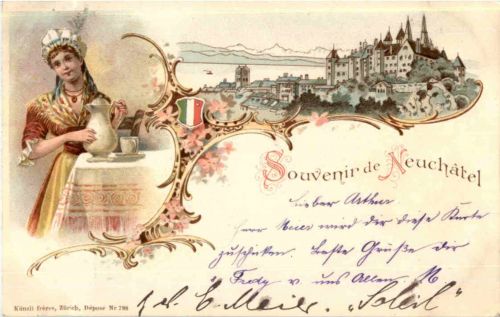 Souvenir de Neuchâtel
lieber Arthur
Herr Meier wird dir diese Karte
zuschicken. Beste Grüße der
Fredy v. uns Allen
E. Meier. „Soleil"
Künzli frères, Zürich, Dépose Nr 798